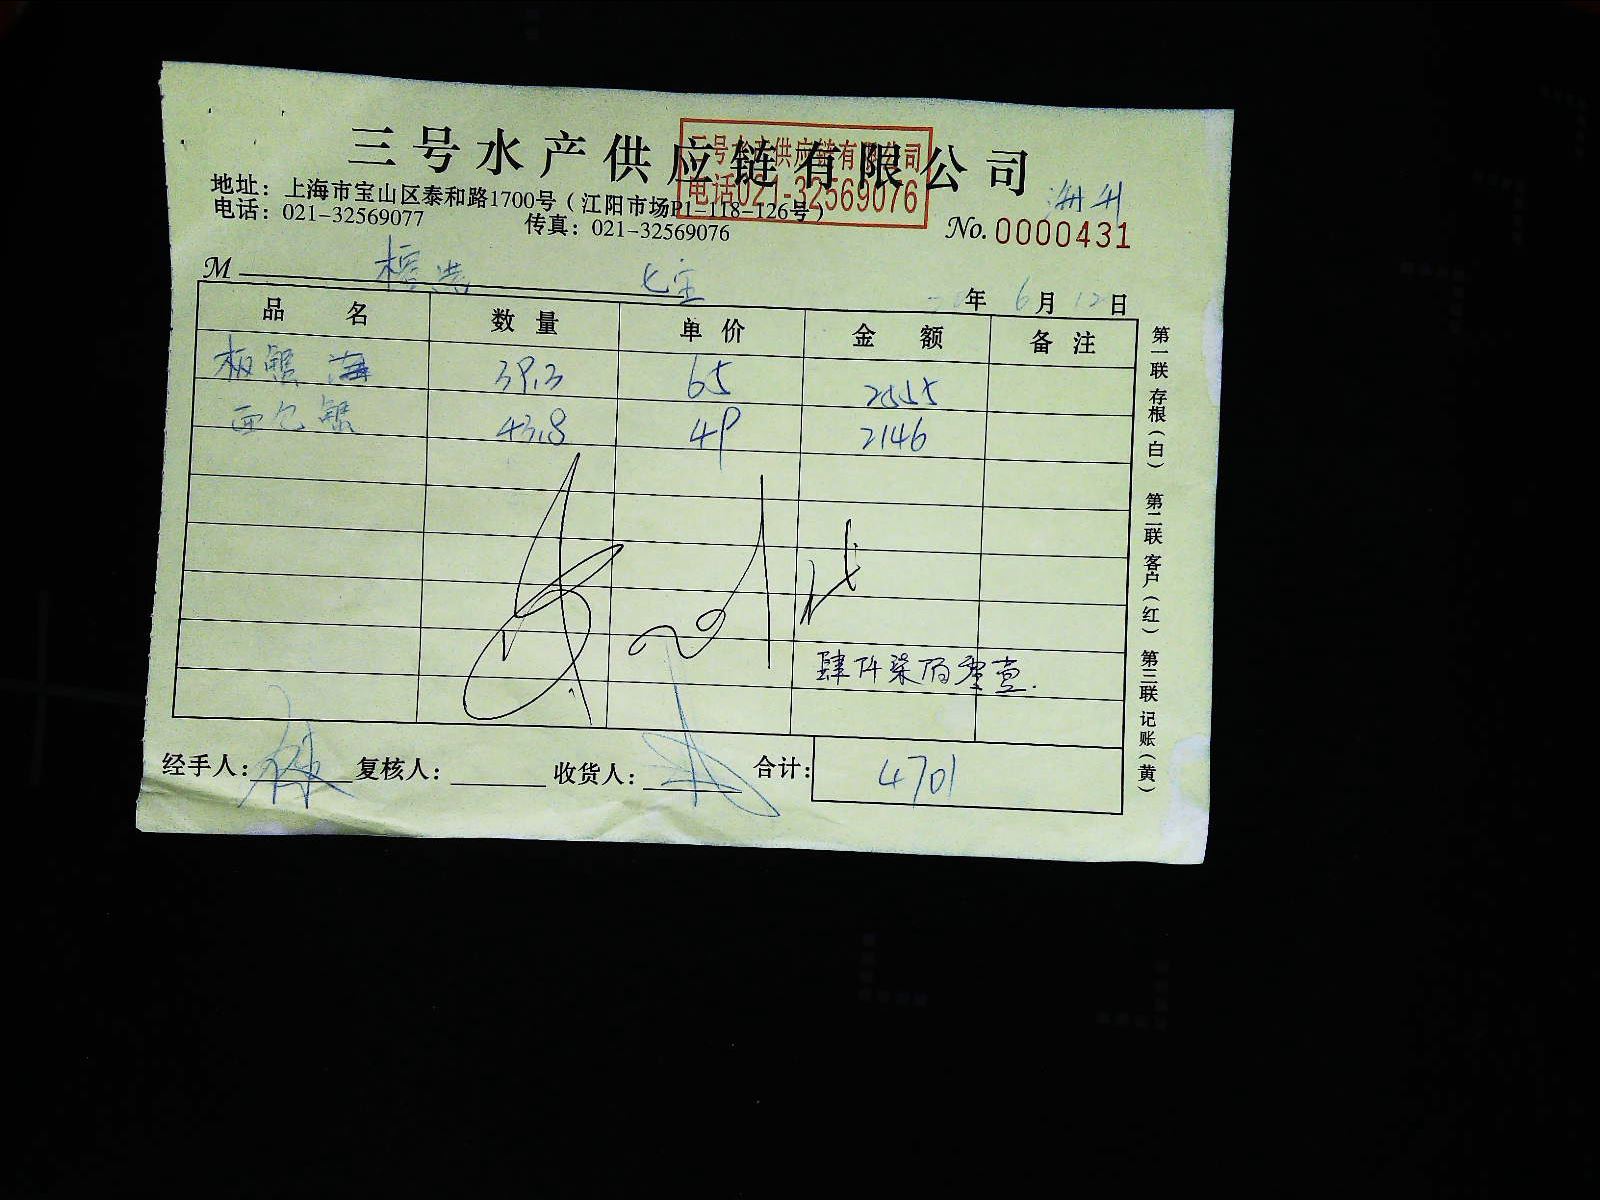 三号水产供应链有限公司
三号水产供应链有限公司
电话021-32569076
地址：上海市宝山区泰和路1700号（江阳市场P1-118-126号）
电话：021-32569077 传真：021-32569076
No. 0000431
M 七宝
年 6月 12日
品 名 数 量 单 价 金 额 备 注
板蟹 海 39.3 65 2555
面包蟹 43.8 49 2146
肆仟柒佰零壹.
经手人： 复核人： 收货人： 合计： 4701
第一联 存根（白） 第二联 客户（红） 第三联 记账（黄）